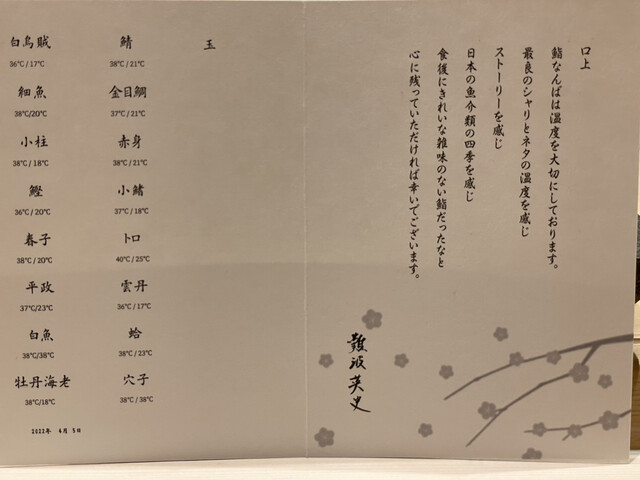 口上
鮨なんばは温度を大切にしております。
最良のシャリとネタの温度を感じ
ストーリーを感じ
日本の魚介類の四季を感じ
食後にきれいな雑味のない鮨だったなと
心に残っていただければ幸いでございます。
難波英史
白烏賊
36℃/17℃
細魚
38℃/20℃
小柱
38℃/18℃
鰹
36℃/20℃
春子
38℃/20℃
平政
37℃/23℃
白魚
38℃/38℃
牡丹海老
38℃/18℃
鯖
38℃/21℃
金目鯛
37℃/21℃
赤身
38℃/21℃
小鰭
37℃/18℃
トロ
40℃/25℃
雲丹
36℃/17℃
蛤
38℃/23℃
穴子
38℃/38℃
玉
2022年 4月 5日